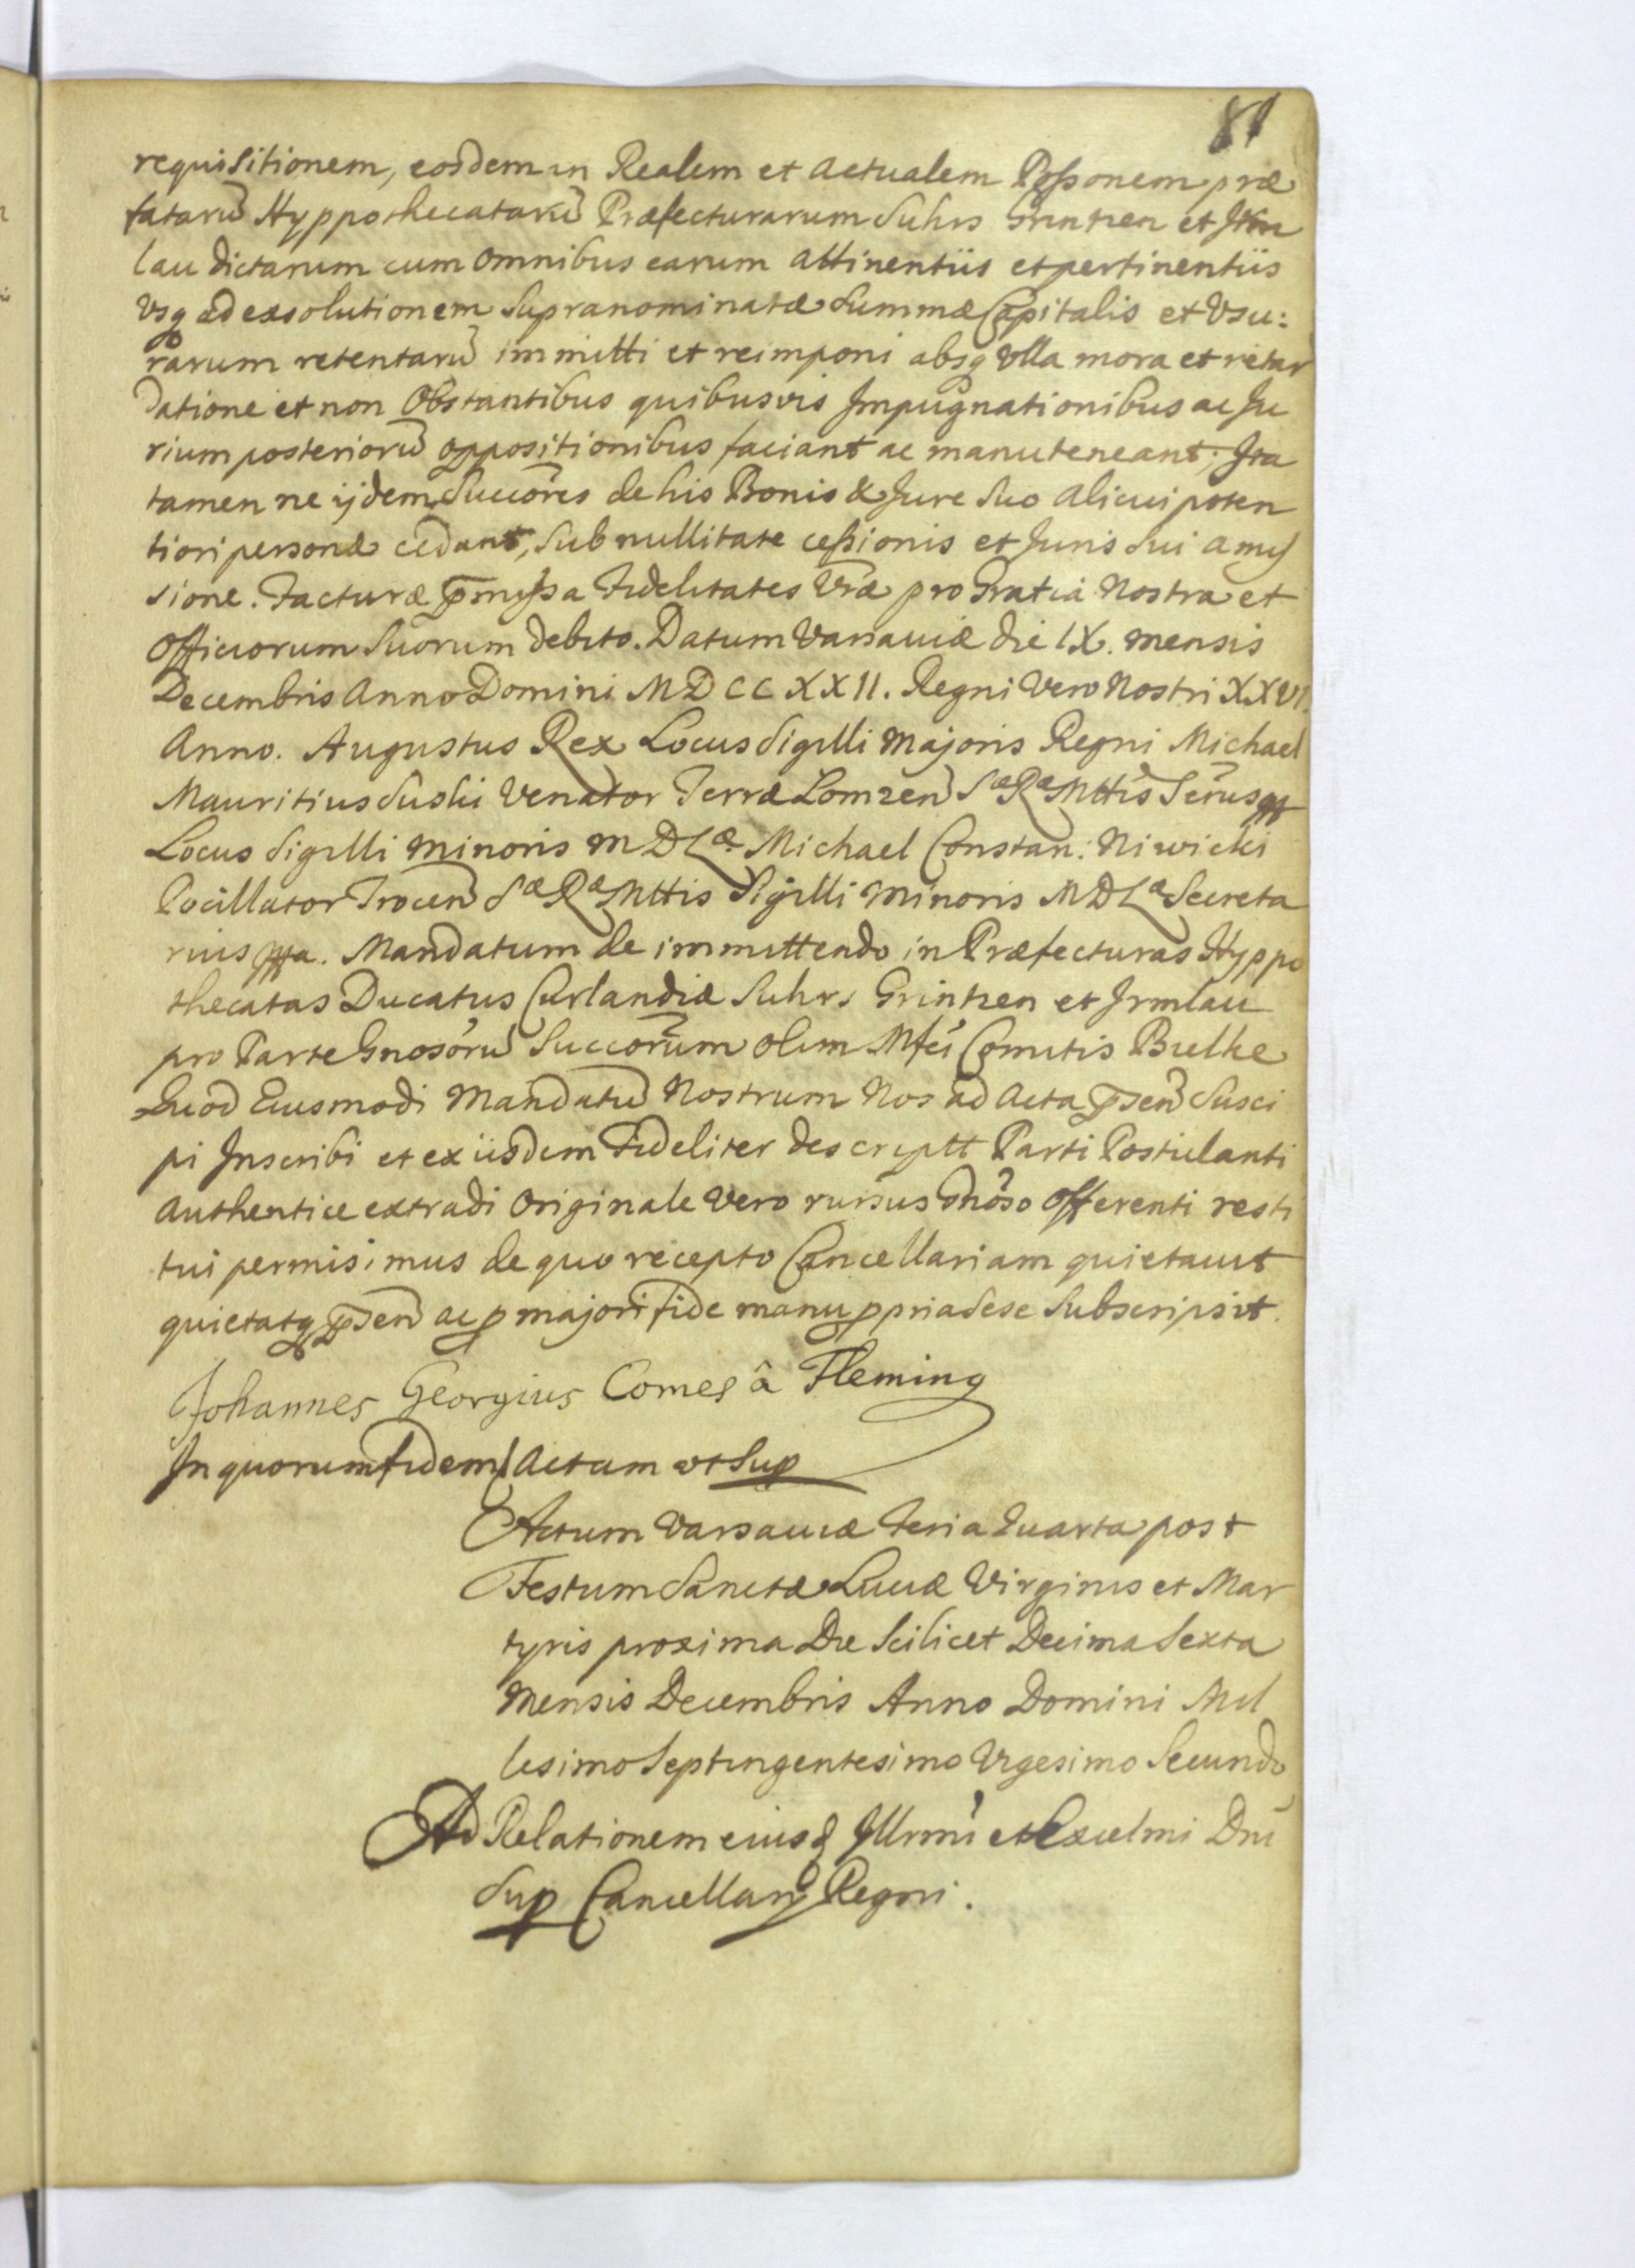 81
requisitionem, eosdem in Realem et actualem Possonem præ
fatarū Hyppothecatarū Præfecturarum Suhrs Grintzen et Irm
lau dictarum cum omnibus earum attinentiis et pertinentiis
Vsq ad exsolutionem supranominatæ summæ Capitalis et Vsu:
rarum retentarū immitti et reimponi absq Vlla mora et retar
datione et non Obstantibus quibusvis Impugnationibus ac Ju
rium posteriorū oppositionibus faciant ac manuteneant. Ita
tamen ne ijdem Succōres de his Bonis & Jure suo alicui poten
tiori personæ cedant, sub nullitate cessionis et Juris sui amis
sione. Facturæ p̄missa Fidelitates Vræ pro Gratia Nostra et
Officiorum suorum debito. Datum Varsaviæ die IX. mensis
Decembris Anno Domini MDCCXXII. Regni Vero Nostri XXVI.
Anno. Augustus Rex Locus Sigilli Majoris Regni Michael
Mauritius Suski Venator Terræ Lomzeñ Sæ Ræ Mttis Secrius
Locus Sigilli Minoris M D Læ Michael Constan: Niwicki
Pocillator Troceñ Sæ Ræ Mttis Sigilli Minoris M D Læ Secreta
rius mpa. Mandatum de immittendo in Præfecturas Hyppo
thecatas Ducatus Curlandiæ Suhrs Grintzen et Irmlau
pro Parte Gnosōrū Succōrum olim Mfci Comitis Bielke
Quod Eiusmodi Mandatū Nostrum Nos ad Acta p̄señ Susci
pi Inscribi et ex iisdem Fideliter descriptt Parti Postulanti
authentice extradi Originale Vero rursus Gnōso Offerenti resti
tui permisimus de quo recepto Cancellariam quietavit
quietatq p̄señ ac p majori fide manu ppria sese subscripsit.
Johannes Georgius Comes â Fleming
In quorum fidem / Actum ut Sup
Actum Varsaviæ Feria Quarta post
Festum Sanctæ Luciæ Virginis et Mar
tyris proxima Die scilicet Decima Sexta
Mensis Decembris Anno Domini Mil
lesimo Septingentesimo Vigesimo Secundo
Ad Relationem eiusd Illrmi et Excelmi Dni
Sup Cancellarij Regni.